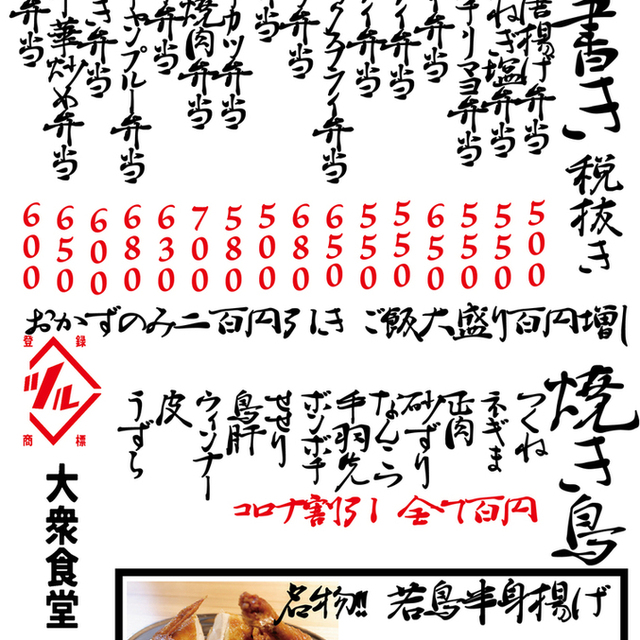 書き 税抜き
唐揚げ弁当 500
ねぎ塩弁当 550
チリマヨ弁当 550
弁当 650
弁当 550
弁当 550
タフライ弁当 650
弁当 680
弁当 500
カツ弁当 580
焼肉弁当 700
弁当 630
チャンプルー弁当 680
き弁当 600
中華炒め弁当 650
弁当 600
おかずのみ二百円引き ご飯大盛り百円増し
焼き鳥
つくね
ネギま
正肉
砂ずり
なんこつ
手羽先
ボンボチ
せせり
鳥肝
ウィンナー
皮
うずら
コロナ割引 全て百円
登録商標
ツル
大衆食堂
名物!! 若鳥半身揚げ